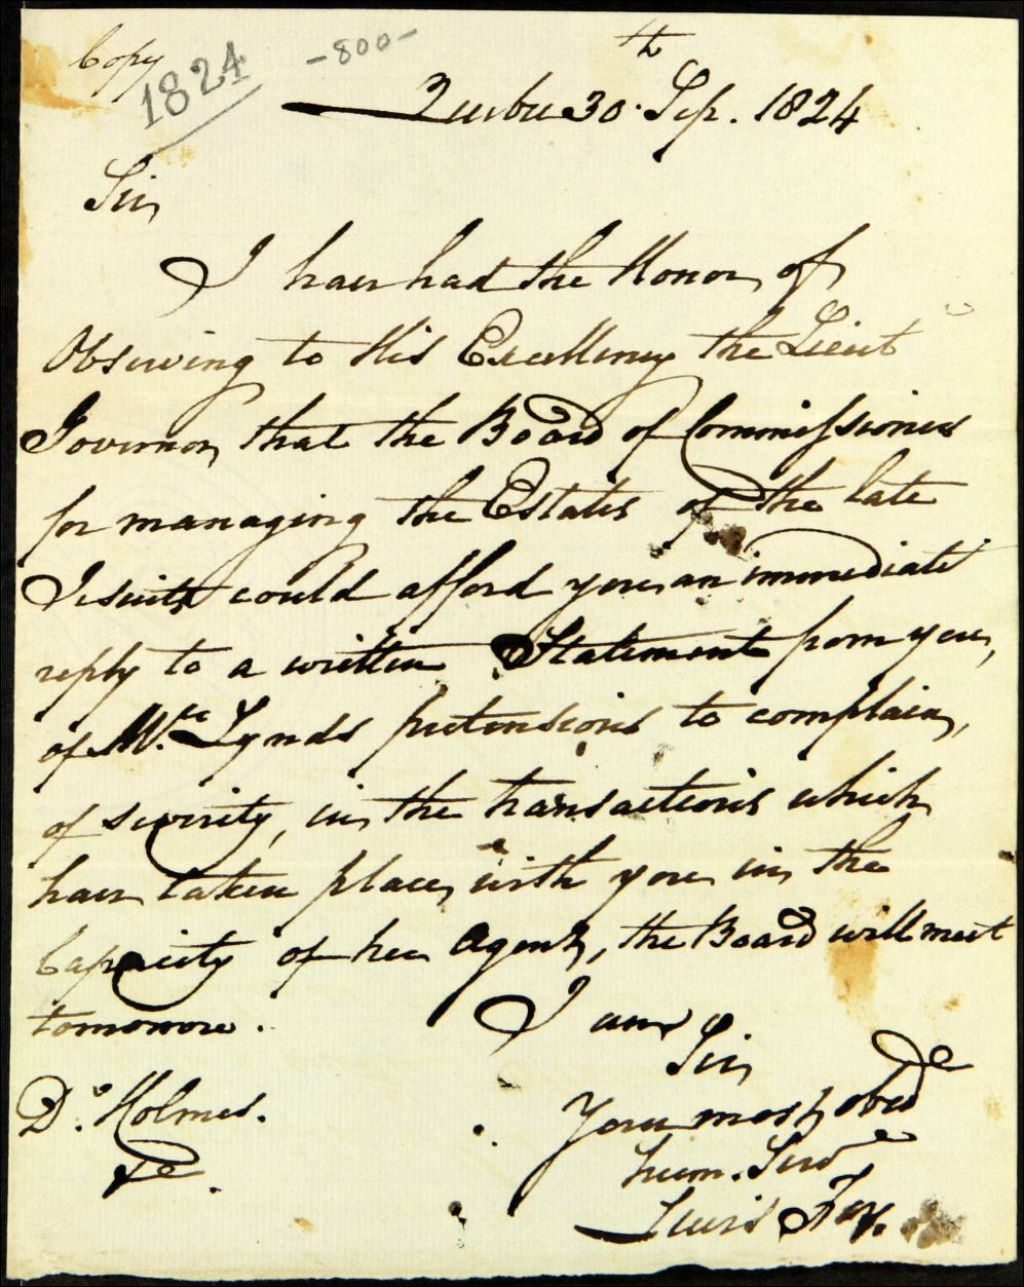 Copy
1824
-800-
Quebec 30th Sep. 1824
Sir
I have had the Honor of
Observing to His Excellency the Lieut
Governor, that the Board of Commissioners
for managing the Estates of the late
Jesuits could afford you an immediate
reply to a written Statement from you,
of Mrs. Lynds pretensions to complain,
of severity, in the transactions which
have taken place, with you in the
Capacity of her Agent, the Board will meet
tomorrow.
I am
Sir
Your most obed
hum. Serv
Lewis Foy.
Dr. Holmes.
&c.